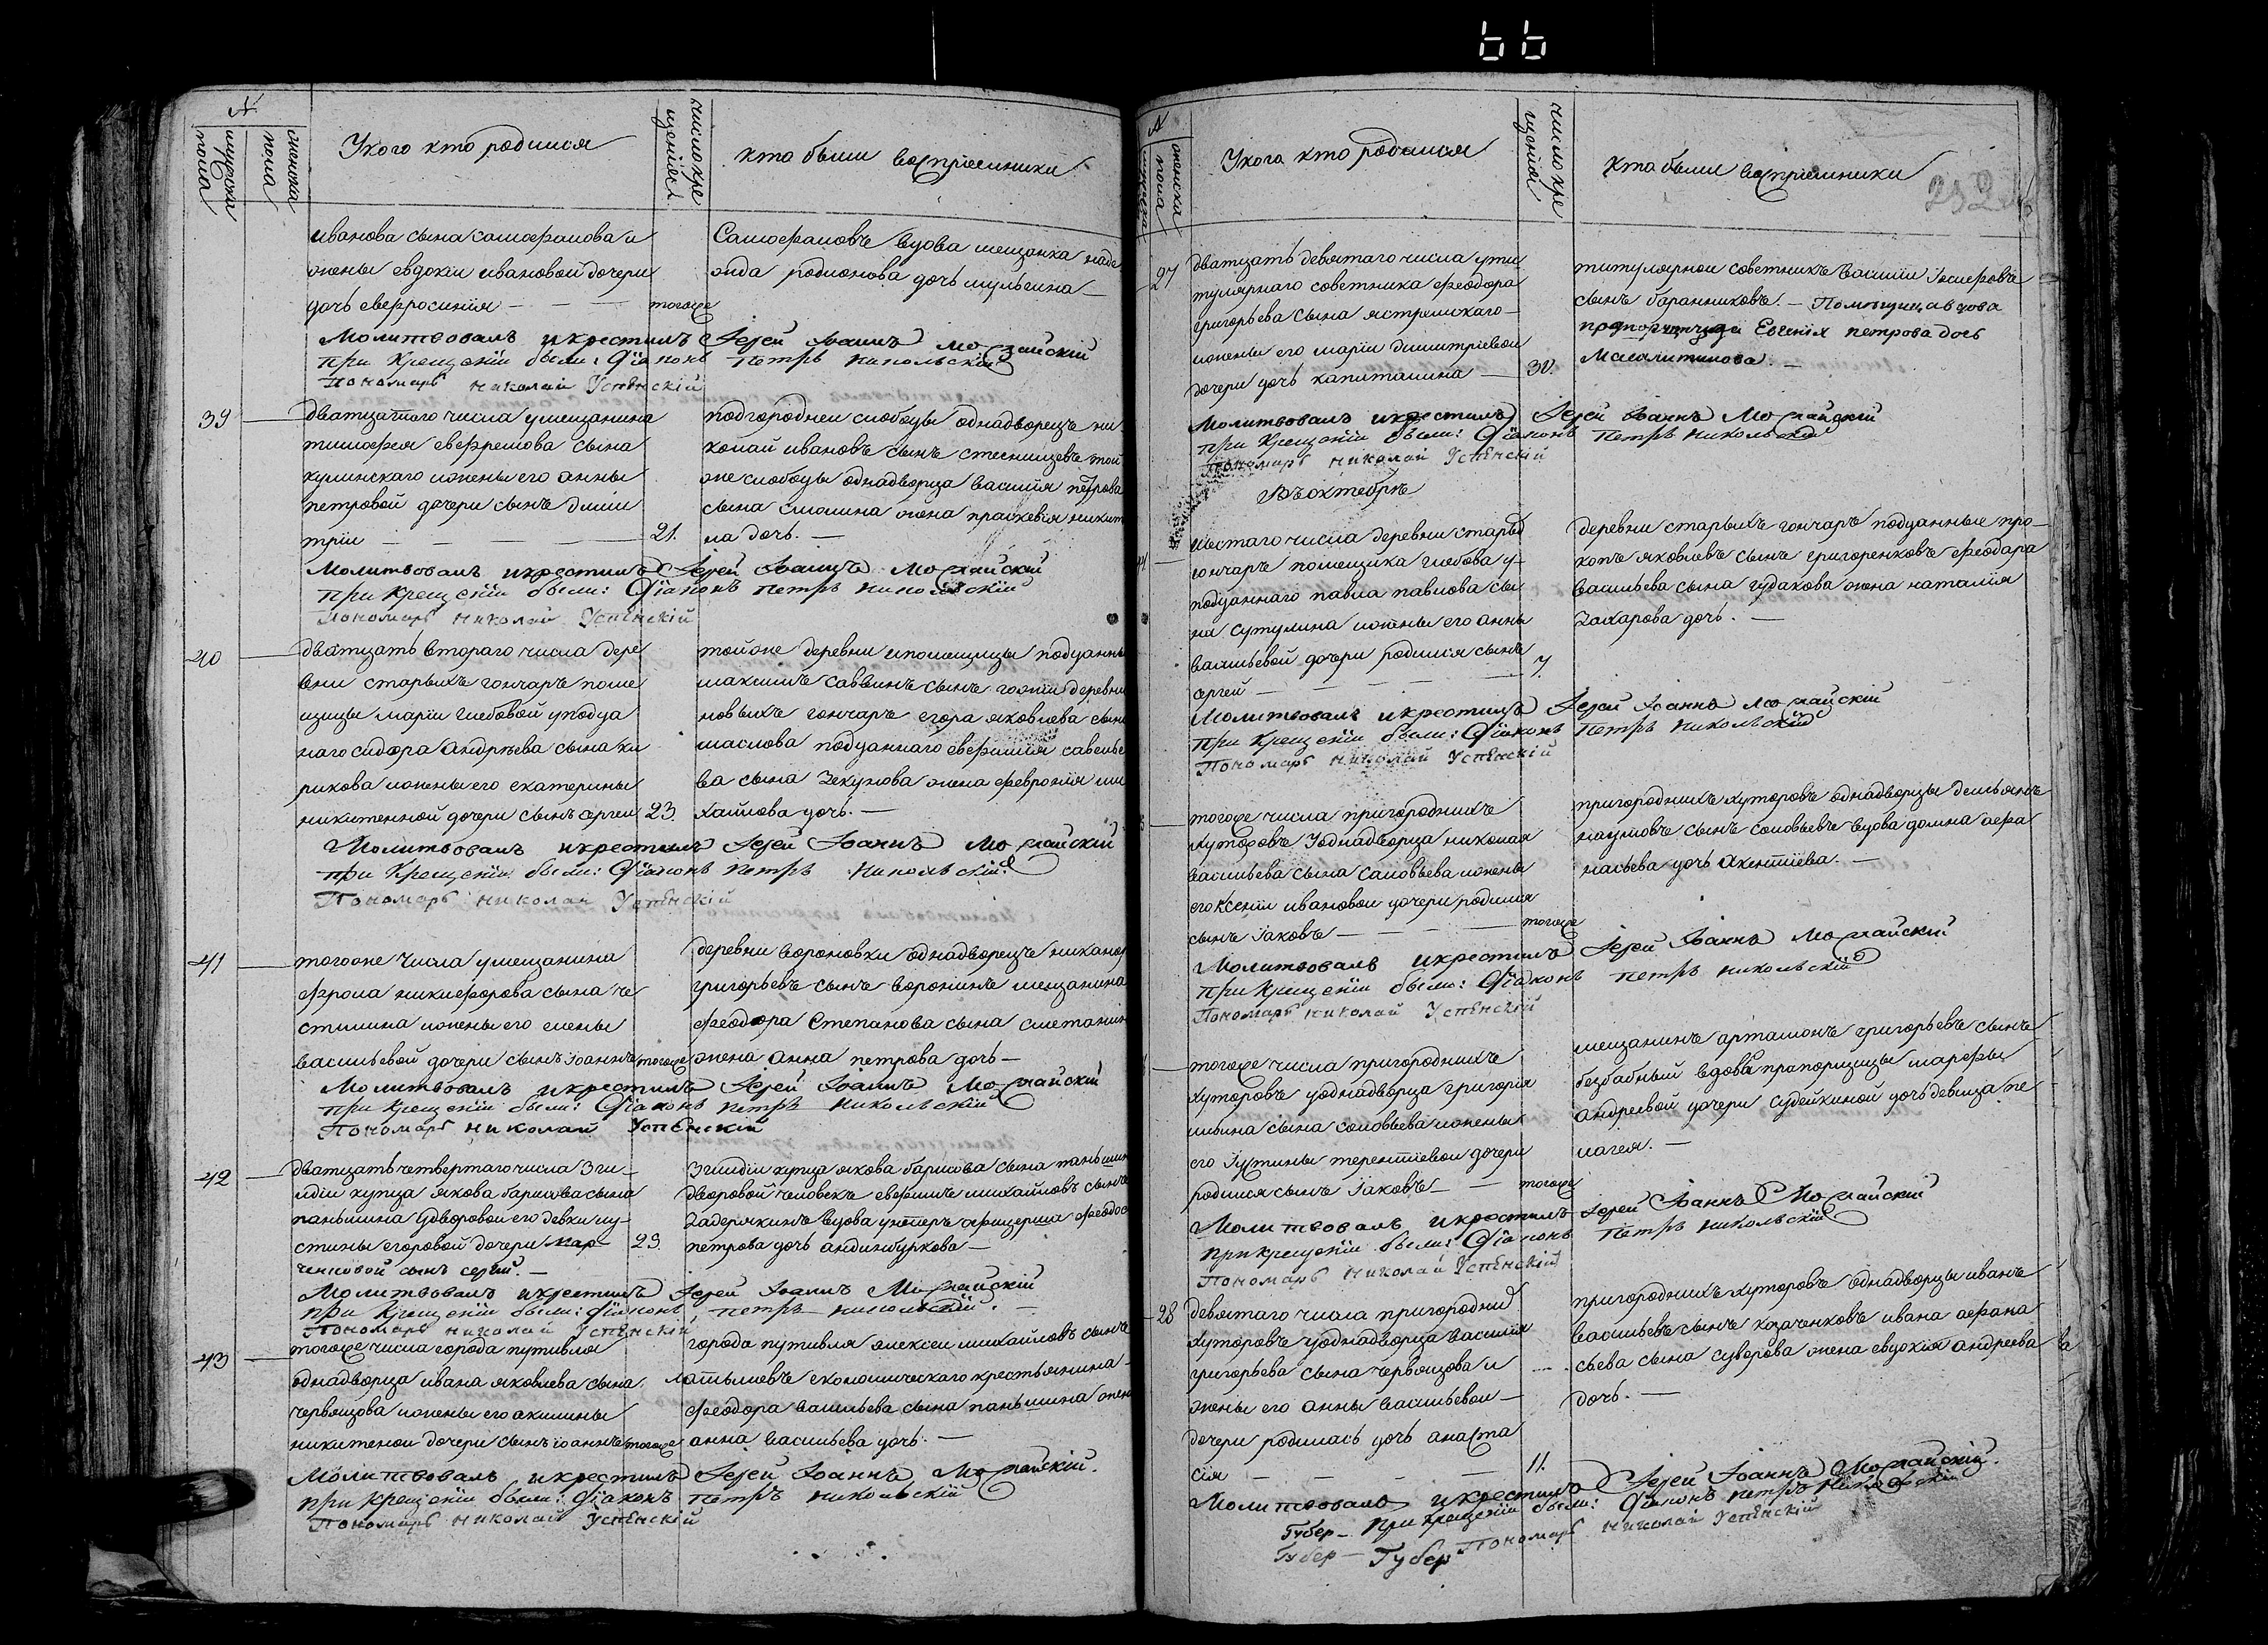 66
№
мужеска пола
женска пола
У кого кто родился
число крещенія
кто были восприемники
иванова сына самофалова и
жены евдокіи ивановой дочери
дочь евфросинія — — — тогоже
Самофаловъ вдова мещанка наде
жда родионова дочь шульгина —
Молитвовалъ и крестилъ Іерей Іоаннъ Можайскій
при крещеніи были: Діаконъ Петръ Никольскій
Пономарь Николай Успѣнскій
39 — дватцатого числа умещанина
тимофея евфремова сына
кулинскаго ижены его анны
петровой дочери сынъ дими
тріи — — — 21.
подгороднеи слободы однадворецъ ни
колай ивановъ сынъ той
же слободы однадворца василія петрова
сына жена праскевія никит
на дочь. —
Молитвовалъ и крестилъ Іерей Іоаннъ Можайскій
при крещеніи были: Діаконъ Петръ Никольскій
Пономарь Николай Успѣнскій
40 — дватцать втораго числа дере
вни старыхъ гончаръ поме
щицы маріи глебовой уподда
наго сидора андрѣева сына ки
рикова ижены его екатерины
никитенной дочери сынъ сергеи 23.
тойже деревни ипомещицы подданны
максимъ саввинъ сынъ деревни
новыхъ гончаръ егора яковлева сына
маслова подданнаго евфимія савелье
ва сына чекунова жена февронія ми
хаилова дочь. —
Молитвовалъ и крестилъ Іерей Іоаннъ Можайскій
при крещеніи были: Діаконъ Петръ Никольскій
Пономарь Николай Успѣнскій
41 — тогоже числа умещанина
фрола никифорова сына че
стилина ижены его елены
васильевой дочери сынъ іоаннъ тогоже
деревни вороновки однадворецъ никанор
григорьевъ сынъ воронинъ мещанина
феодора Степанова сына сметанин
жена анна петрова дочь —
Молитвовалъ и крестилъ Іерей Іоаннъ Можайскій
при крещеніи были: Діаконъ Петръ Никольскій
Пономарь Николай Успѣнскій
42 — дватцать четвертаго числа 3 ги—
лдіи купца якова барисова сына
паньшина удворовои его девки иу—
стины егоровой дочери мар—
ченковой сынъ сергій. — 29.
3 гилдіи купца якова барисова сына паньшин
дворовой человекъ евфимъ михайловъ сынъ
задерикинъ вдова унтеръ афицерша феодос
петрова дочь андинбуркова —
Молитвовалъ и крестилъ Іерей Іоаннъ Можайскій
при крещеніи были: Діаконъ Петръ Никольскій.
Пономарь Николай Успѣнскій
43 — тогоже числа города путивля
однадворца ивана яковлева сына
червяцова ижены его акилины
никитенои дочери сынъ іоаннъ тогоже
города путивля алексеи михайловъ сынъ
латышевъ економическаго крестьянина
феодора васильева сына паньшина жен
анна васильева дочь. —
Молитвовалъ и крестилъ Іерей Іоаннъ Можайскій.
при крещеніи были: Діаконъ Петръ Никольскій
Пономарь Николай Успѣнскій
№
мужеска
женска пола
У кого кто родился
число крещенія
кто были восприемники
232
27 дватцать девятаго числа ути
тулярнаго советника феодора
григорьева сына ястремскаго —
ижены его маріи димитріевои
дочери дочь капиталина — 30.
титулярнои советникъ василіи іосифовъ
сынъ баранниковъ. — Помощица вдова
Евгенія петрова дочь
Масалитинова. —
Молитвовалъ и крестилъ Іерей Іоаннъ Можайскій
при крещеніи были: Діаконъ Петръ Никольскій
Пономарь Николай Успѣнскій
Въ октебрѣ
шестаго числа деревни старыхъ
гончаръ помещика глебова у—
подданнаго павла павлова сы
на сутулина ижены его анны
васильевой дочери родился сынъ
сергей — — — 7.
деревни старыхъ гончаръ подданные про—
копъ яковлевъ сынъ григоренковъ феодара
васильева сына гудакова жена наталія
захарова дочь. —
Молитвовалъ и крестилъ Іерей Іоаннъ Можайскій
при крещеніи были: Діаконъ Петръ Никольскій
Пономарь Николай Успѣнскій
тогоже числа пригороднихъ
хуторовъ Уоднадворца николая
васильева сына саловьева ижены
его ксеніи ивановои дочери родился
сынъ іаковъ — — — тогоже
пригороднихъ хуторовъ однадворцы демьянъ
наумовъ сынъ соловьевъ вдова домна афа
насьева дочь Акентіева. —
Молитвовалъ и крестилъ Іерей Іоаннъ Можайскій
при крещеніи были: Діаконъ Петръ Никольскій
Пономарь Николай Успѣнскій
тогоже числа пригороднихъ
хуторовъ уоднадворца григорія
ильина сына соловьева ижены
его іустины терентіевои дочери
родился сынъ іаковъ — — тогоже
мещанинъ артамонъ григорьевъ сынъ
безбабный вдовы прапорщицы марфы
андреевой дочери судейкиной дочь девица пе
лагея. —
Молитвовалъ и крестилъ Іерей Іоаннъ Можайскій
при крещеніи были: Діаконъ Петръ Никольскій
Пономарь Николай Успѣнскій
28 — девятаго числа пригородних
хуторовъ уоднадворца василія
григорьева сына червяцова и
жены его анны васильевои —
дочери родилась дочь анаста
сія — — — 11.
пригороднихъ хуторовъ однадворцы иванъ
васильевъ сынъ козаченковъ ивана афана
сьева сына суворова жена евдокія андреева
дочь. —
Молитвовалъ и крестилъ Іерей Іоаннъ Можайскій.
при крещеніи были: Діаконъ Петръ Никольскій
Пономарь Николай Успѣнскій
Губер —
Губер — Губер